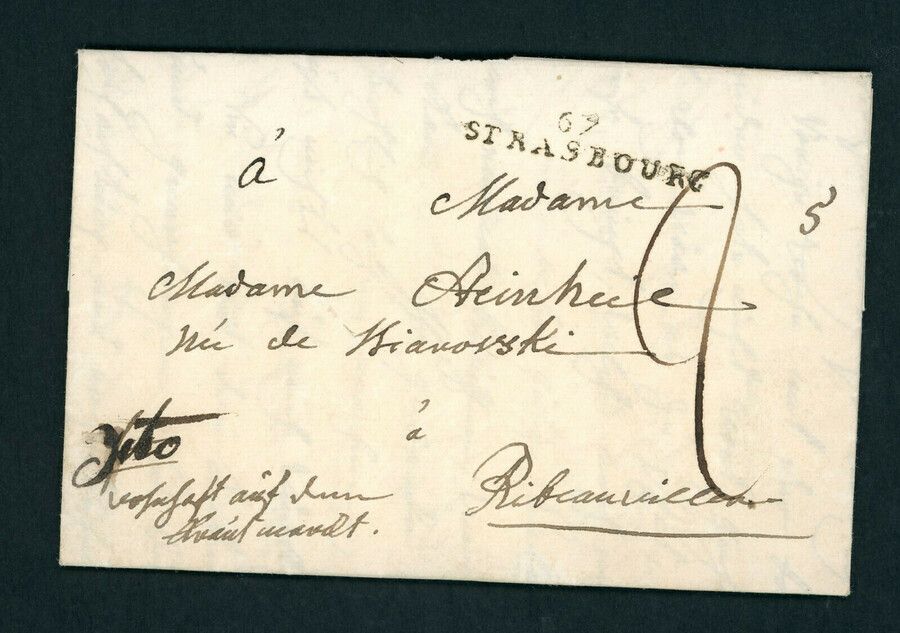 67
STRASBOURG
à Madame
5
Madame Steinheil
née de Kiarowski
2
à
Cito
Ribeauvillé
wohnhaft auf dem
Krautmarckt.